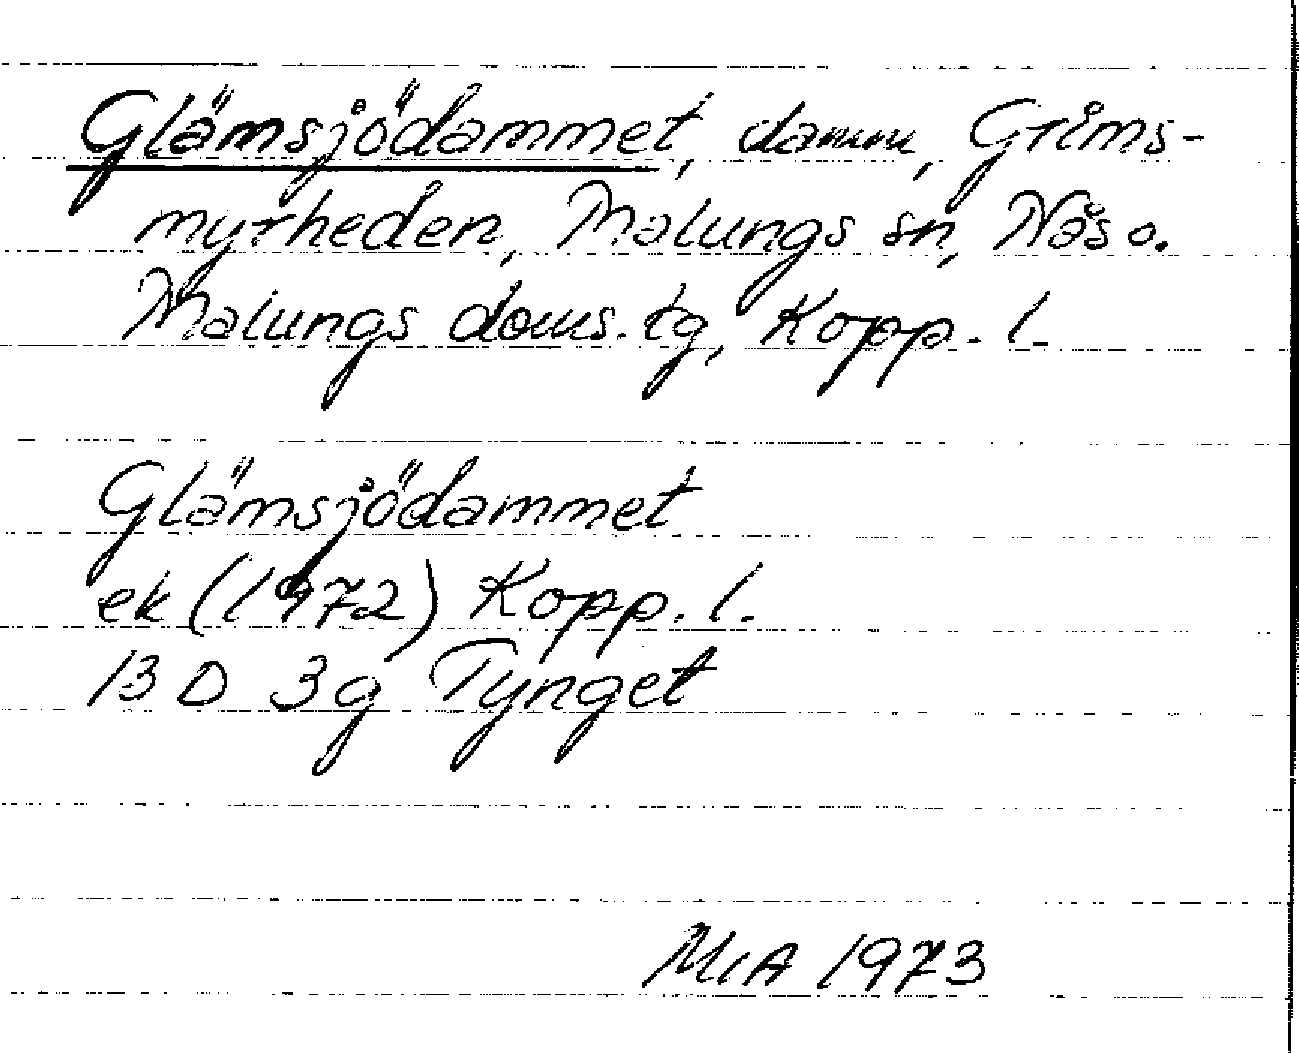 Glämsjödammet, damm, Grims-
myrheden, Malungs sn, Nås o.
Malungs doms. tg, Kopp. l.
Glämsjödammet
ek (1972) Kopp. l.
13 D 3g Tynget
MIA 1973